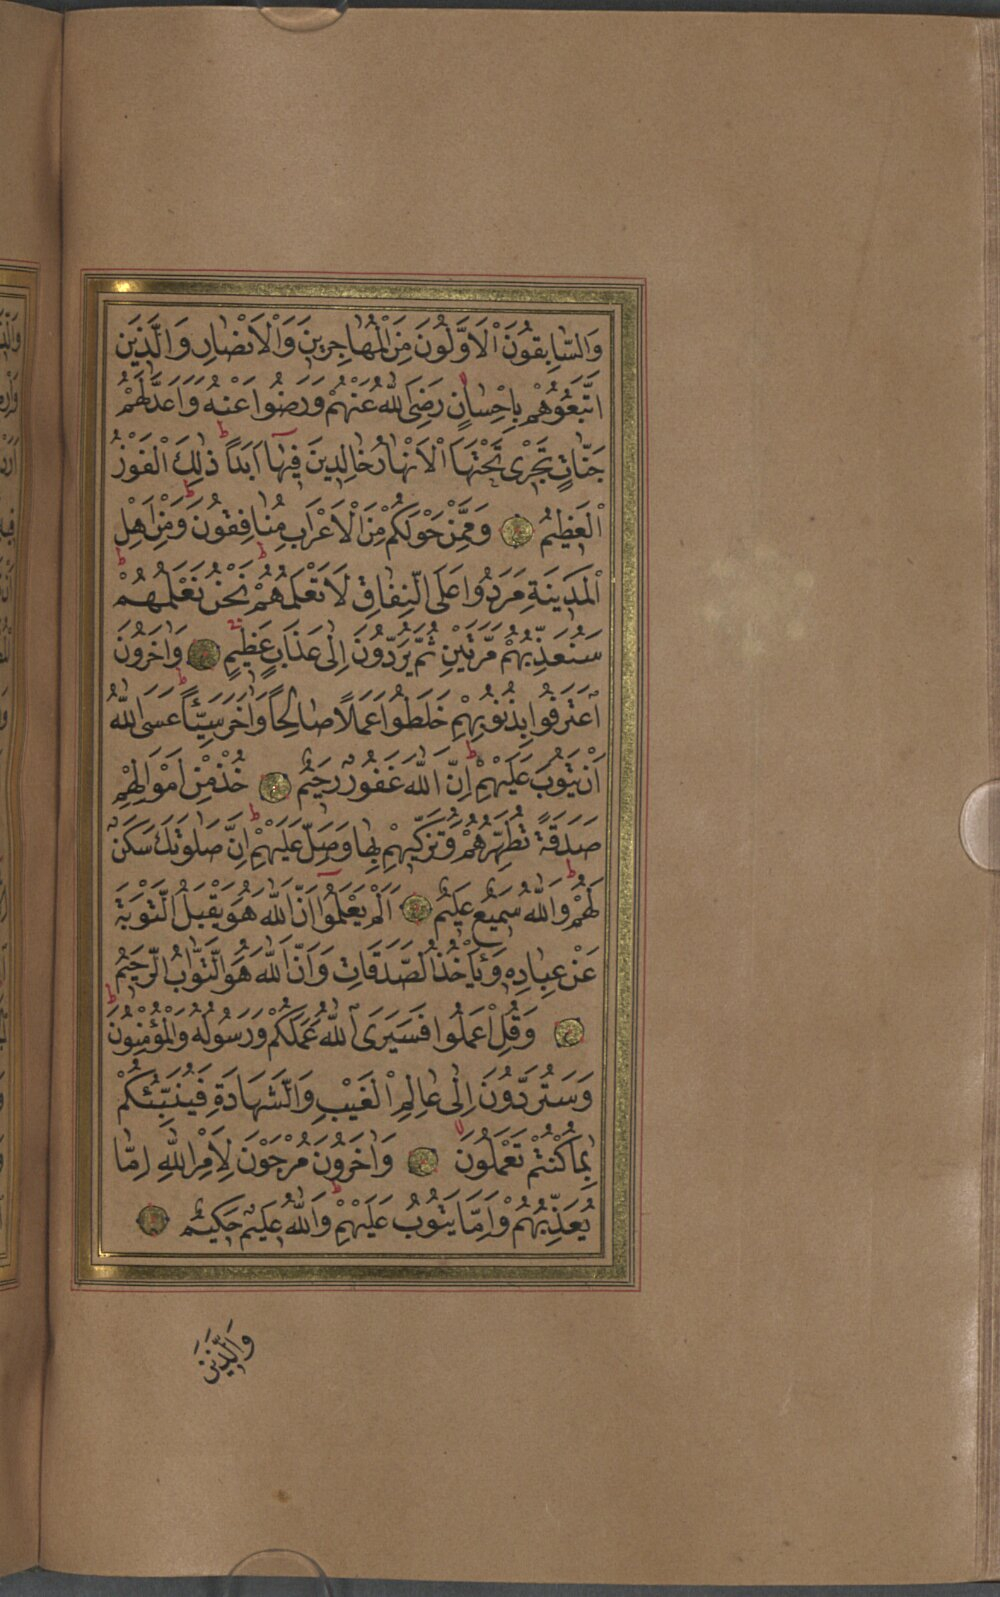 وَالسَّابِقُونَ الْاَوَّلُونَ مِنَ الْمُهَاجِرِينَ وَالْاَنْصَارِ وَالَّذِينَ
اتَّبَعُوهُمْ بِاِحْسَانٍ رَضِيَ اللّٰهُ عَنْهُمْ وَرَضُوا عَنْهُ وَاَعَدَّ لَهُمْ
جَنَّاتٍ تَجْرِي تَحْتَهَا الْاَنْهَارُ خَالِدِينَ فِيهَا اَبَدًا ذٰلِكَ الْفَوْزُ
الْعَظِيمُ وَمِمَّنْ حَوْلَكُمْ مِنَ الْاَعْرَابِ مُنَافِقُونَ وَمِنْ اَهْلِ
الْمَدِينَةِ مَرَدُوا عَلَى النِّفَاقِ لَا تَعْلَمُهُمْ نَحْنُ نَعْلَمُهُمْ
سَنُعَذِّبُهُمْ مَرَّتَيْنِ ثُمَّ يُرَدُّونَ اِلٰى عَذَابٍ عَظِيمٍ وَاٰخَرُونَ
اعْتَرَفُوا بِذُنُوبِهِمْ خَلَطُوا عَمَلًا صَالِحًا وَاٰخَرَ سَيِّئًا عَسَى اللّٰهُ
اَنْ يَتُوبَ عَلَيْهِمْ اِنَّ اللّٰهَ غَفُورٌ رَحِيمٌ خُذْ مِنْ اَمْوَالِهِمْ
صَدَقَةً تُطَهِّرُهُمْ وَتُزَكِّيهِمْ بِهَا وَصَلِّ عَلَيْهِمْ اِنَّ صَلٰوتَكَ سَكَنٌ
لَهُمْ وَاللّٰهُ سَمِيعٌ عَلِيمٌ اَلَمْ يَعْلَمُوا اَنَّ اللّٰهَ هُوَ يَقْبَلُ التَّوْبَةَ
عَنْ عِبَادِهِ وَيَأْخُذُ الصَّدَقَاتِ وَاَنَّ اللّٰهَ هُوَ التَّوَّابُ الرَّحِيمُ
وَقُلِ اعْمَلُوا فَسَيَرَى اللّٰهُ عَمَلَكُمْ وَرَسُولُهُ وَالْمُؤْمِنُونَ
وَسَتُرَدُّونَ اِلٰى عَالِمِ الْغَيْبِ وَالشَّهَادَةِ فَيُنَبِّئُكُمْ
بِمَا كُنْتُمْ تَعْمَلُونَ وَاٰخَرُونَ مُرْجَوْنَ لِاَمْرِ اللّٰهِ اِمَّا
يُعَذِّبُهُمْ وَاِمَّا يَتُوبُ عَلَيْهِمْ وَاللّٰهُ عَلِيمٌ حَكِيمٌ
وَالَّذِينَ